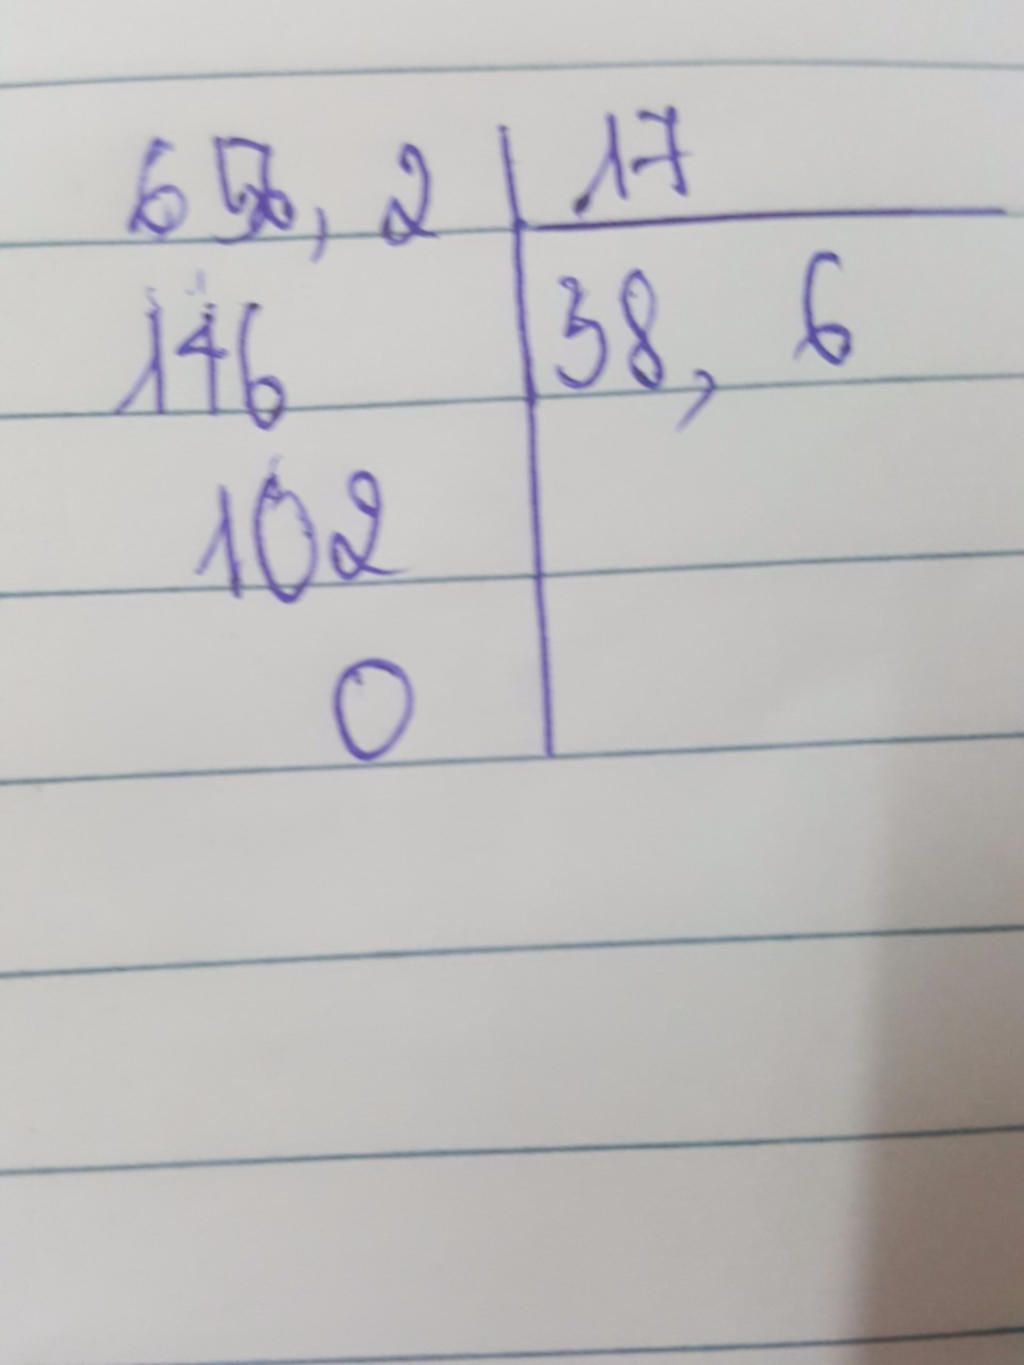 656,2 17
146 38,6
102
0